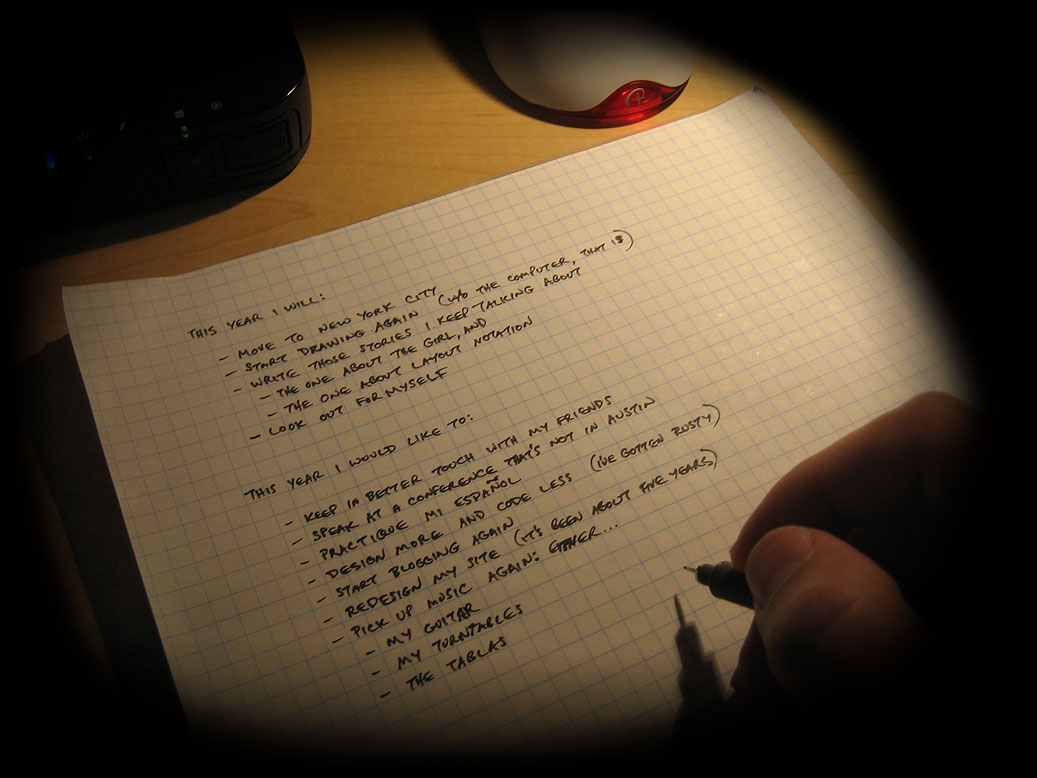 THIS YEAR I WILL:
- MOVE TO NEW YORK CITY
- START DRAWING AGAIN (W/O THE COMPUTER, THAT IS)
- WRITE THOSE STORIES I KEEP TALKING ABOUT
- THE ONE ABOUT THE GIRL, AND
- THE ONE ABOUT LAYOUT NOTATION
- LOOK OUT FOR MYSELF
THIS YEAR I WOULD LIKE TO:
- KEEP IN BETTER TOUCH WITH MY FRIENDS
- SPEAK AT A CONFERENCE THAT'S NOT IN AUSTIN
- PRACTIQUE MI ESPAÑOL
- DESIGN MORE AND CODE LESS (I'VE GOTTEN RUSTY)
- START BLOGGING AGAIN
- REDESIGN MY SITE (IT'S BEEN ABOUT FIVE YEARS)
- PICK UP MUSIC AGAIN: EITHER...
- MY GUITAR
- MY TURNTABLES
- THE TABLAS